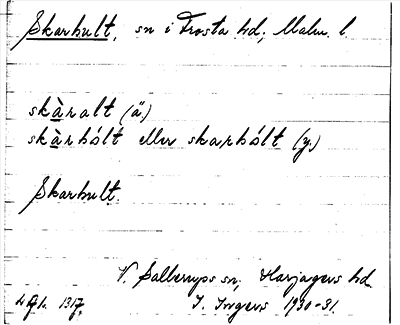 Skarhult, sn i Frosta hd; Malm. l
skàralt (ä.)
skàrhólt eller skarhólt (y.)
Skarhult.
V. Sallerups sn, Harjagers hd.
4 gl. 1317. I. Ingers 1930-31.